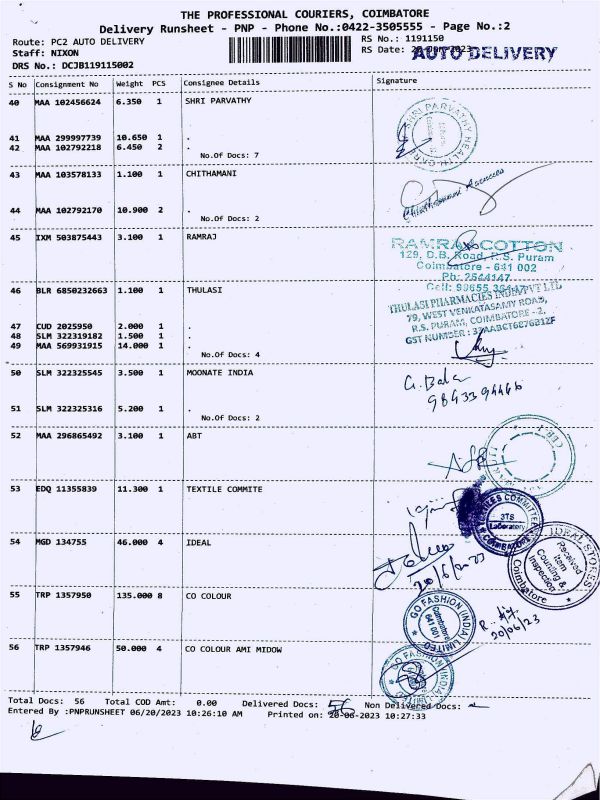 THE PROFESSIONAL COURIERS, COIMBATORE
Delivery Runsheet - PNP - Phone No.:0422-3505555 - Page No.:2
Route: PC2 AUTO DELIVERY
RS No.: 1191150
Staff: NIXON
RS Date: 20-Jun-2023
AUTO DELIVERY
DRS No.: DCJB119115002
S No Consignment No Weight PCS Consignee Details Signature
40 MAA 102456624 6.350 1 SHRI PARVATHY
SHRI PARVATHY HEALTH CARE
41 MAA 299997739 10.650 1 .
42 MAA 102792218 6.450 2 .
No.Of Docs: 7
43 MAA 103578133 1.100 1 CHITHAMANI
44 MAA 102792170 10.900 2 .
No.Of Docs: 2
45 IXM 503875443 3.100 1 RAMRAJ
RAMRAJ COTTON
129, D.B. Road, R.S. Puram
Coimbatore - 641 002
Ph: 2544147
Cell: 93655
46 BLR 6850232663 1.100 1 THULASI
THULASI PHARMACIES INDIA PVT LTD
79, WEST VENKATASAMY ROAD,
R.S. PURAM, COIMBATORE - 2.
GST NUMBER : 33AABCT6876B1ZF
47 CUD 2025950 2.000 1 .
48 SLM 322319182 1.500 1 .
49 MAA 569931915 14.000 1 .
No.Of Docs: 4
50 SLM 322325545 3.500 1 MOONATE INDIA
G. Bala
9843394466
51 SLM 322325316 5.200 1 .
No.Of Docs: 2
52 MAA 296865492 3.100 1 ABT
53 EDQ 11355839 11.300 1 TEXTILE COMMITE
TEXTILES COMMITTEE
3TS
Laboratory
COIMBATORE
54 MGD 134755 46.000 4 IDEAL
20/6/2023
IDEAL STORES
Received
Item
Counting &
Inspection
Coimbatore
55 TRP 1357950 135.000 8 CO COLOUR
GO FASHION (INDIA) LIMITED
Coimbatore
641 001
20/06/23
56 TRP 1357946 50.000 4 CO COLOUR AMI MIDOW
GO FASHION (INDIA) LIMITED
Total Docs: 56 Total COD Amt: 0.00 Delivered Docs: 56 Non Delivered Docs:
Entered By :PNPRUNSHEET 06/20/2023 10:26:10 AM Printed on: 20-06-2023 10:27:33